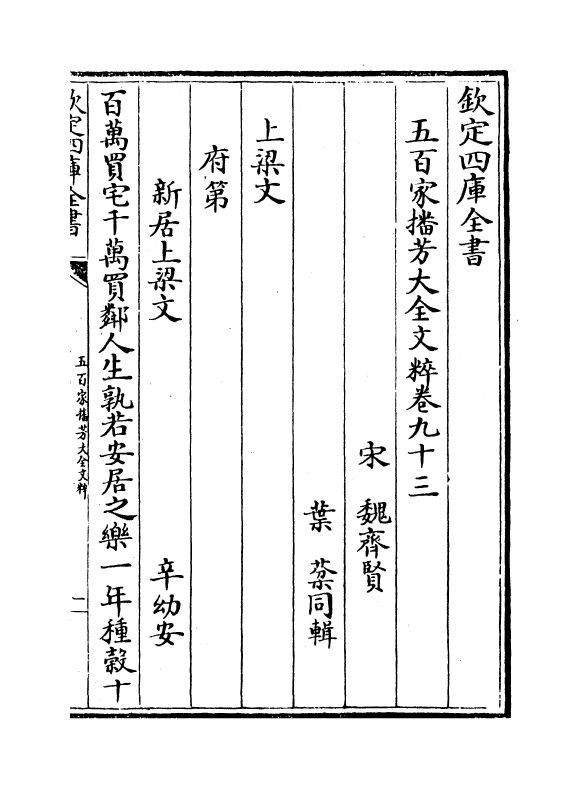 欽定四庫全書
五百家播芳大全文粹卷九十三
宋　魏齊賢
葉　棻同輯
上梁文
府第
新居上梁文　辛幼安
百萬買宅千萬買鄰人生孰若安居之樂一年種穀十
欽定四庫全書
五百家播芳大全文粹
一